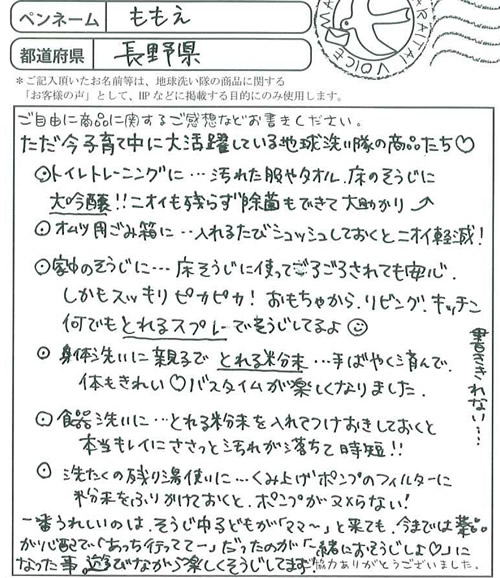 ペンネーム ももえ
都道府県 長野県
*ご記入頂いたお名前等は、地球洗い隊の商品に関する
「お客様の声」として、HPなどに掲載する目的にのみ使用します。
ご自由に商品に関するご感想などお書きください。
ただ今子育て中に大活躍している地球洗い隊の商品たち♡
⊙トイレトレーニングに…汚れた服やタオル、床のそうじに
大吟醸!!ニオイも残らず除菌もできて大助かり
⊙オムツ用ごみ箱に…入れるたびシュッシュしておくとニオイ軽減!
⊙家中のそうじに…床そうじに使ってごろごろされても安心、
しかもスッキリピカピカ!おもちゃから、リビング、キッチン
何でもとれるスプレーでそうじしてるよ☺
⊙身体洗いに親子でとれる粉末…手ばやく済んで、
体もきれい♡バスタイムが楽しくなりました。
⊙食器洗いに…とれる粉末を入れてつけおきしておくと
本当キレイにささっと汚れが落ちて時短!!
⊙洗たくの残り湯使いに…くみ上げポンプのフィルターに
粉末をふりかけておくと、ポンプがヌメらない!
書ききれない…
一番うれしいのは、そうじ中子どもが「ママ〜」と来ても、今までは薬品
が心配で「あっち行ってて〜」だったのが「一緒におそうじしよ♡」に
なった事。遊びながら楽しくそうじしてます!
協力ありがとうございました。